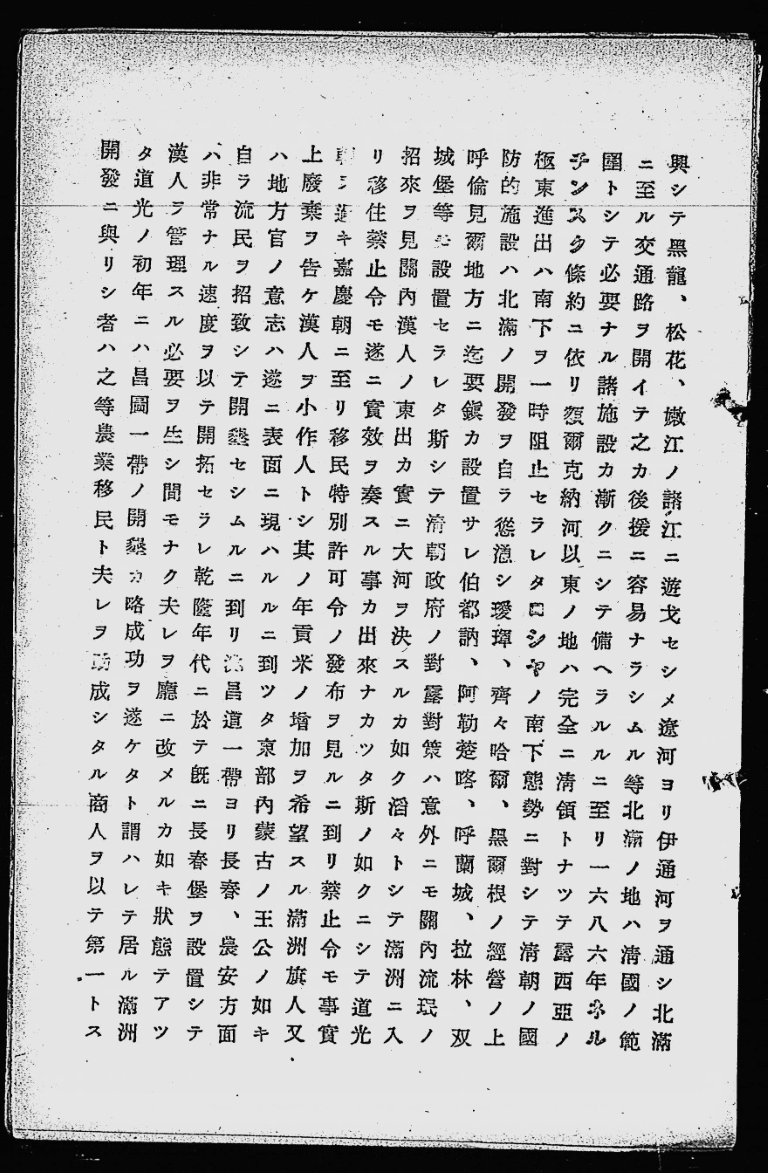 興シテ黑龍、松花、嫩江ノ諸江ニ遊戈セシメ遼河ヨリ伊通河ヲ通シ北滿
ニ至ル交通路ヲ開イテ之カ後援ニ容易ナラシムル等北滿ノ地ハ清國ノ範
圍トシテ必要ナル諸施設カ漸クニシテ備ヘラルルニ至リ一六八六年ネル
チンスク條約ニ依リ額爾克納河以東ノ地ハ完全ニ清領トナツテ露西亞ノ
極東進出ハ南下ヲ一時阻止セラレタロシヤノ南下態勢ニ對シテ清朝ノ國
防的施設ハ北滿ノ開發ヲ自ラ慫慂シ璦琿、齊々哈爾、黑爾根ノ經營ノ上
呼倫見爾地方ニ迄要鎭カ設置サレ伯都訥、阿勒楚喀、呼蘭城、拉林、双
城堡等モ設置セラレタ斯シテ淸朝政府ノ對露對策ハ意外ニモ關內流珉ノ
招來ヲ見關內漢人ノ東出カ實ニ大河ヲ決スルカ如ク滔々トシテ滿洲ニ入
リ移住禁止令モ遂ニ實效ヲ奏スル事カ出來ナカツタ斯ノ如クニシテ道光
朝ヲ過キ嘉慶朝ニ至リ移民特別許可令ノ發布ヲ見ルニ到リ禁止令モ事實
上廢棄ヲ告ケ漢人ヲ小作人トシ其ノ年貢米ノ增加ヲ希望スル滿洲旗人又
ハ地方官ノ意志ハ遂ニ表面ニ現ハルルニ到ツタ東部內蒙古ノ王公ノ如キ
自ラ流民ヲ招致シテ開墾セシムルニ到リ昌道一帶ヨリ長春、農安方面
ハ非常ナル速度ヲ以テ開拓セラレ乾隆年代ニ於テ旣ニ長春堡ヲ設置シテ
漢人ヲ管理スル必要ヲ生シ間モナク夫レヲ廳ニ改メルカ如キ狀態テアツ
タ道光ノ初年ニハ昌圖一帶ノ開墾カ略成功ヲ遂ケタト謂ハレテ居ル滿洲
開發ニ與リシ者ハ之等農業移民ト夫レヲ助成シタル商人ヲ以テ第一トス